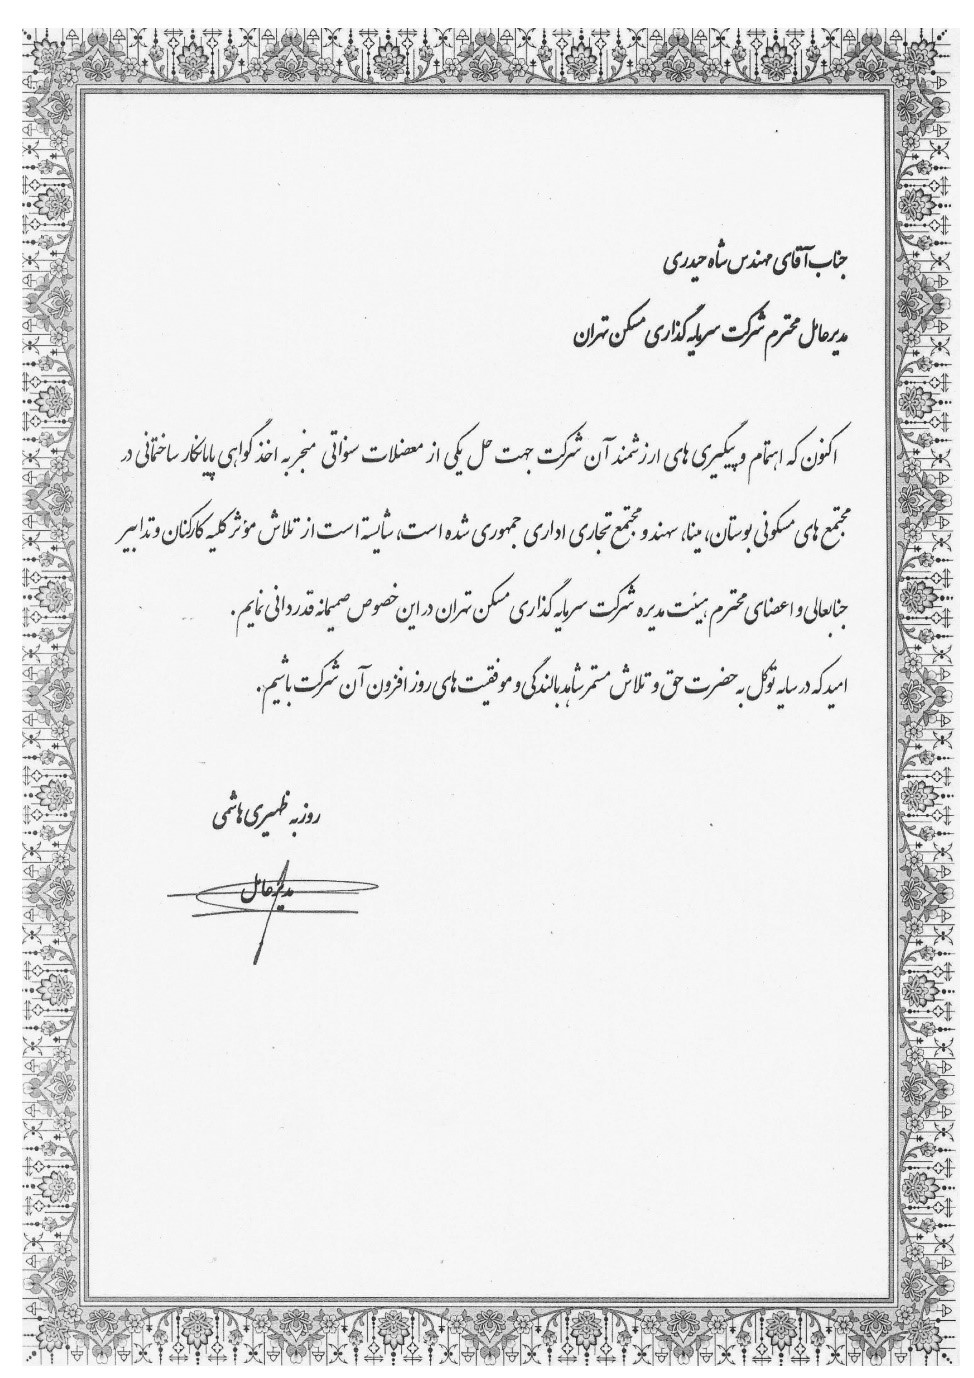 جناب آقای مهندس شاه حیدری
مدیرعامل محترم شرکت سرمایه گذاری مسکن تهران
اکنون که اهتمام و پیگیری های ارزشمند آن شرکت جهت حل یکی از معضلات سنواتی منجر به اخذ گواهی پایانکار ساختمانی در
مجتمع های مسکونی بوستان، مینا، سهند و مجتمع تجاری اداری جمهوری شده است، شایسته است از تلاش مؤثر کلیه کارکنان و تدابیر
جنابعالی و اعضای محترم هیئت مدیره شرکت سرمایه گذاری مسکن تهران در این خصوص صمیمانه قدردانی نمایم.
امید که در سایه توکل به حضرت حق و تلاش مستمر شاهد بالندگی و موفقیت های روز افزون آن شرکت باشیم.
روزبه ظهیری هاشمی
مدیرعامل